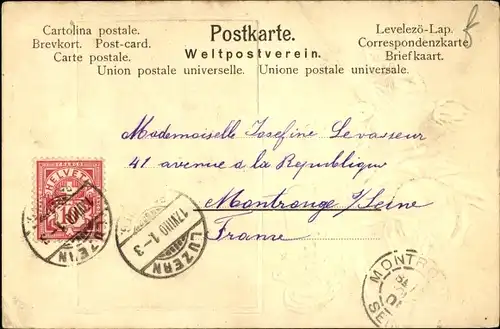 Cartolina postale.
Brevkort. Post-card.
Carte postale.
Postkarte.
Weltpostverein.
Levelezö-Lap.
Correspondenzkarte
Briefkaart.
Union postale universelle. Unione postale universale.
Mademoiselle Josefine Levasseur
41 avenue de la Republique
Montrouge s/Seine
France
HELVETIA
10
LUZERN
LUZERN
1-3
MONTR
SE